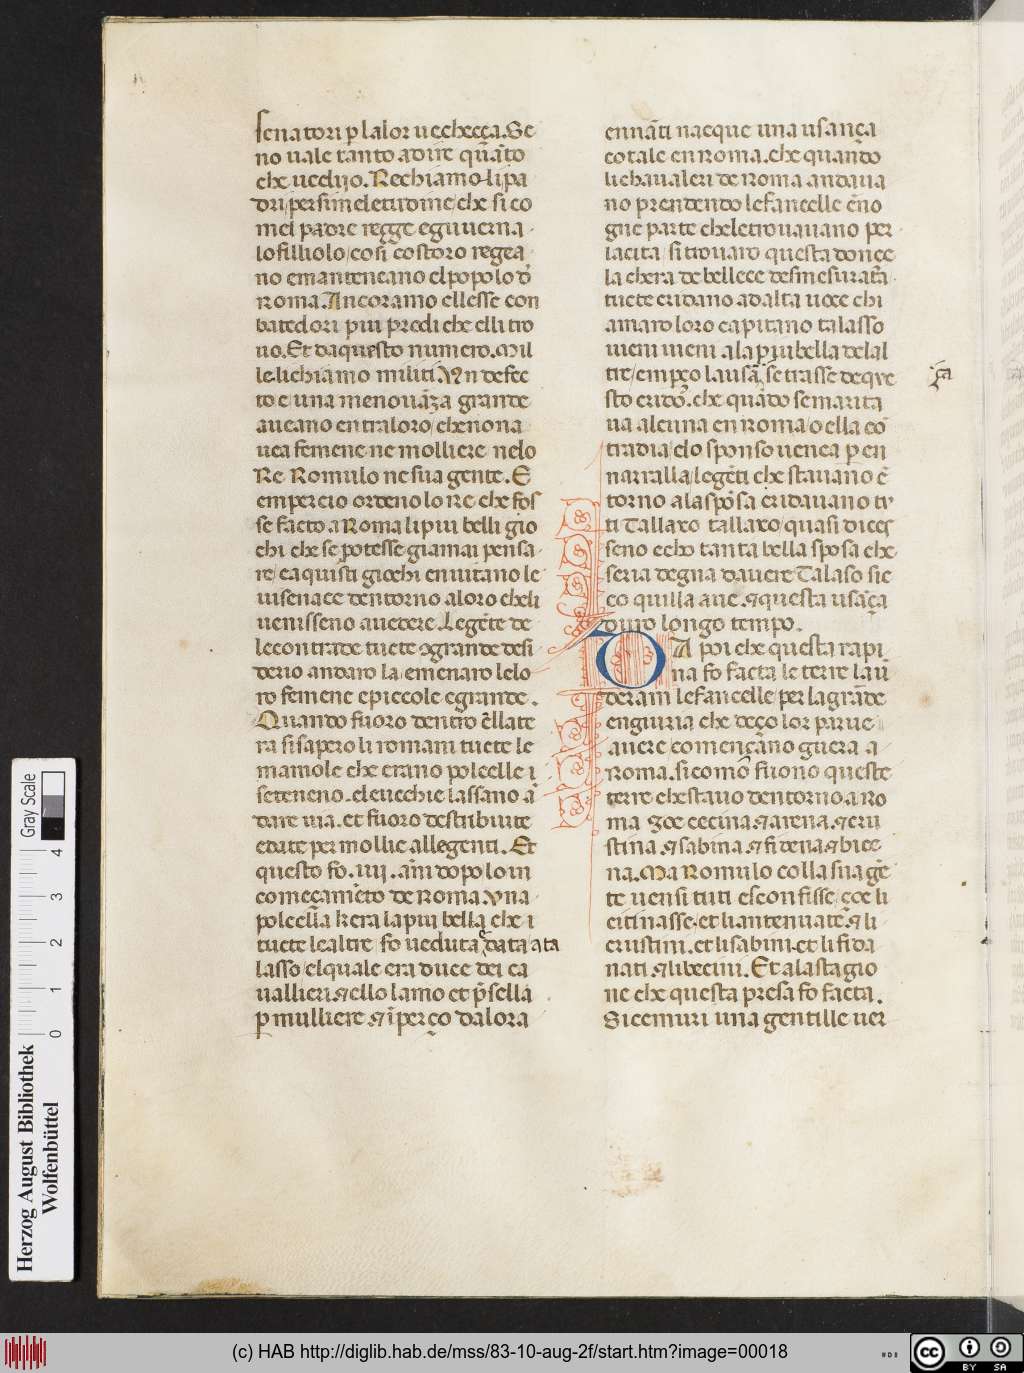 senatori ꝑ lalor uecheçça. Se
no uale tanto a dire quãto
che uechio. Rechiamo li pa
dri per simeletudine che si co
mel padre regge e guuerna
lo filliolo cosi costoro regea
no e mantenano el popolo d'
Roma. Ancora mo ellesse con
batedori piu predi che elli tro
uo. Et da questo numero. Mil
le. li chiamo militi. Un defec
to e una menouãza grande
aueano entraloro che non a
uea femene ne molliere ne lo
Re Romulo ne sua gente. E
empercio ordeno lo Re che fos
se facto a Roma li piu belli gio
chi che se potesse giamai pensa
re e a quisti giochi enuitano le
uisenace dentorno a loro che li
uenisseno a uedere. Legẽte de
le contrade tuete 7 grande desi
derio andaro la e menaro lelo
ro femene e piccole e grande.
Quando fuoro dentro ẽ llate
ra si sapero li romani tuete le
mamole che erano polcelle i
seteneno. el euechie lassano ã
dare uia. et fuoro destribuite
e date per mollie alle genti. Et
questo fo. iiii. ãni dopo lo in
começamẽto de Roma. Una
polcella k era la piu bella che i
tuete le altre fo ueduta data a ta
lasso el quale era duce dei ca
uallieri. 7 ello lamo et p̃sella
ꝑ mulliere 7 ĩperço dalora
ennãti nacque una usança
cotale en Roma. che quando
li chaualeri de Roma andaua
no prendendo le fancelle ẽno
gne parte che le trouauano per
la cita si trouaro questa donce
lla chera de bellece desmesurata
tuete cridano ad alta uoce chi
amaro loro capitano talasso
uieni uieni a la piu bella de lal
tre / emp̱ço lausã se trasse de que
ça
sto cridõ. che quãdo se marita
ua alcuna en Roma o ella cõ
tradia / elo sponso uenea per en
narralla / le gẽti che stauano ẽ
torno a la spõsa cridauano tu
ti Tallaxo tallaxo quasi dices
seno echo tanta bella sposa che
seria degna dauere Talaso sie
co quilla aue. 7 questa usãça
duro longo tempo.
DA poi che questa rapi
na fo facta le terre laũ
deram le fancelle per la grãde
engiuria che deço lor parue
auere començano guera a
Roma. si comõ fuono queste
terre che stauo dentorno a Ro
ma çoe cecina. 7 arena. 7 cru
stina. 7 sabina. 7 fidena. 7 bice
na. Ma Romulo colla sua gẽ
te uensi tuti e sconfisse. çoe li
citinasse. et li antenuate. 7 li
crustini. et li sabini. et li fida
nati. 7 li becini. Et a la stagio
ne che questa presa fo facta.
Sicemuri una gentille uer
Herzog August Bibliothek
Wolfenbüttel
0 1 2 3 4
Gray Scale
(c) HAB http://diglib.hab.de/mss/83-10-aug-2f/start.htm?image=00018
cc BY SA